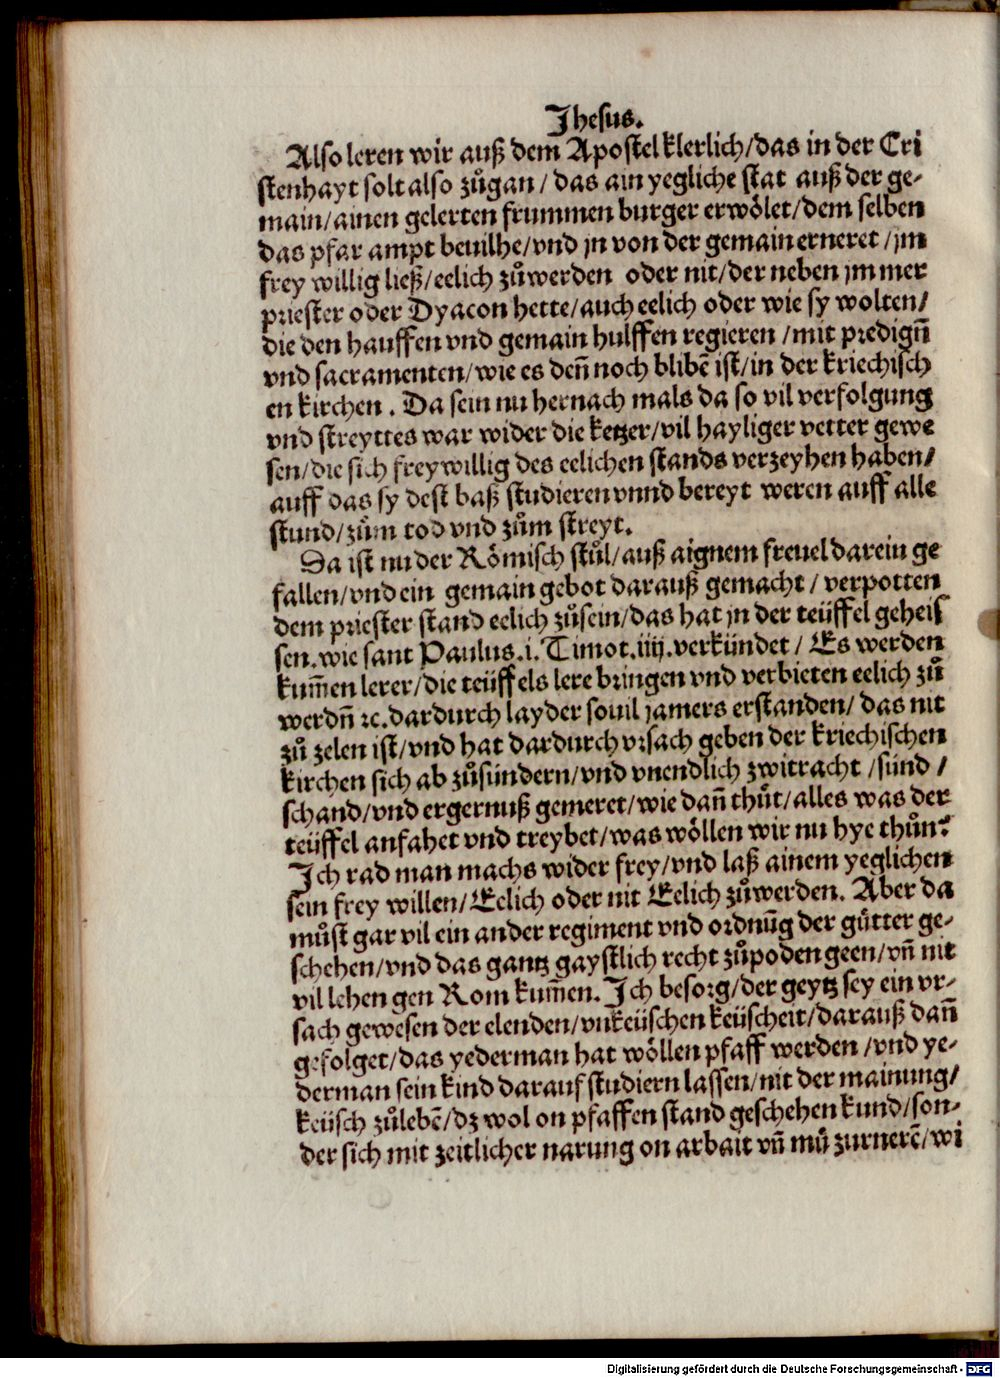 Jhesus.
Also leren wir auß dem Apostel klerlich/das in der Cri
stenhayt solt also zůgan / das ain yegliche stat auß der ge-
main/ainen gelerten frummen burger erwölet/dem selben
das pfar ampt beuilhe/vnd jn von der gemain erneret /jm
frey willig ließ/eelich zůwerden oder nit/der neben jm mer
priester oder Dyacon hette/auch eelich oder wie sy wolten/
die den hauffen vnd gemain hulffen regieren /mit predign̄
vnd sacramenten/wie es den̄ noch blibē ist/in der kriechisch
en kirchen . Da sein nu hernach mals da so vil verfolgung
vnd streyttes war wider die ketzer/vil hayliger vetter gewe
sen/die sich freywillig des eelichen stands verzeyhen haben/
auff das sy dest baß studieren vnnd bereyt weren auff alle
stund/zům tod vnd zům streyt.
Da ist nu der Römisch stůl/auß aignem freuel darein ge
fallen/vnd ein gemain gebot darauß gemacht / verpotten
dem priester stand eelich zůsein/das hat jn der teüffel geheis
sen.wie sant Paulus.i.Timot.iiij.verkündet / Es werden
kum̄en lerer/die teüffels lere bringen vnd verbieten eelich zů
werdn̄ ꝛc.dardurch layder souil jamers erstanden/ das nit
zů zelen ist/vnd hat dardurch vrsach geben der kriechischen
kirchen sich ab zůsündern/vnd vnendlich zwitracht /sünd /
schand/vnd ergernuß gemeret/wie dan̄ thůt/alles was der
teüffel anfahet vnd treybet/was wöllen wir nu hye thůn?
Ich rad man machs wider frey/vnd laß ainem yeglichen
sein frey willen/Eelich oder nit Eelich zůwerden. Aber da
můst gar vil ein ander regiment vnd ordnūg der gütter ge-
schehen/vnd das gantz gaystlich recht zůpoden geen/vn̄ nit
vil lehen gen Rom kum̄en. Ich besorg/der geytz sey ein vr-
sach gewesen der elenden/vnkeüschen keüscheit/darauß dan̄
gefolget/das yederman hat wöllen pfaff werden /vnd ye-
derman sein kind darauf studiern lassen/nit der mainung/
keüsch zůlebē/dz wol on pfaffen stand geschehen kund/son-
der sich mit zeitlicher narung on arbait vn̄ mů zurnerē/wi
Digitalisierung gefördert durch die Deutsche Forschungsgemeinschaft - DFG